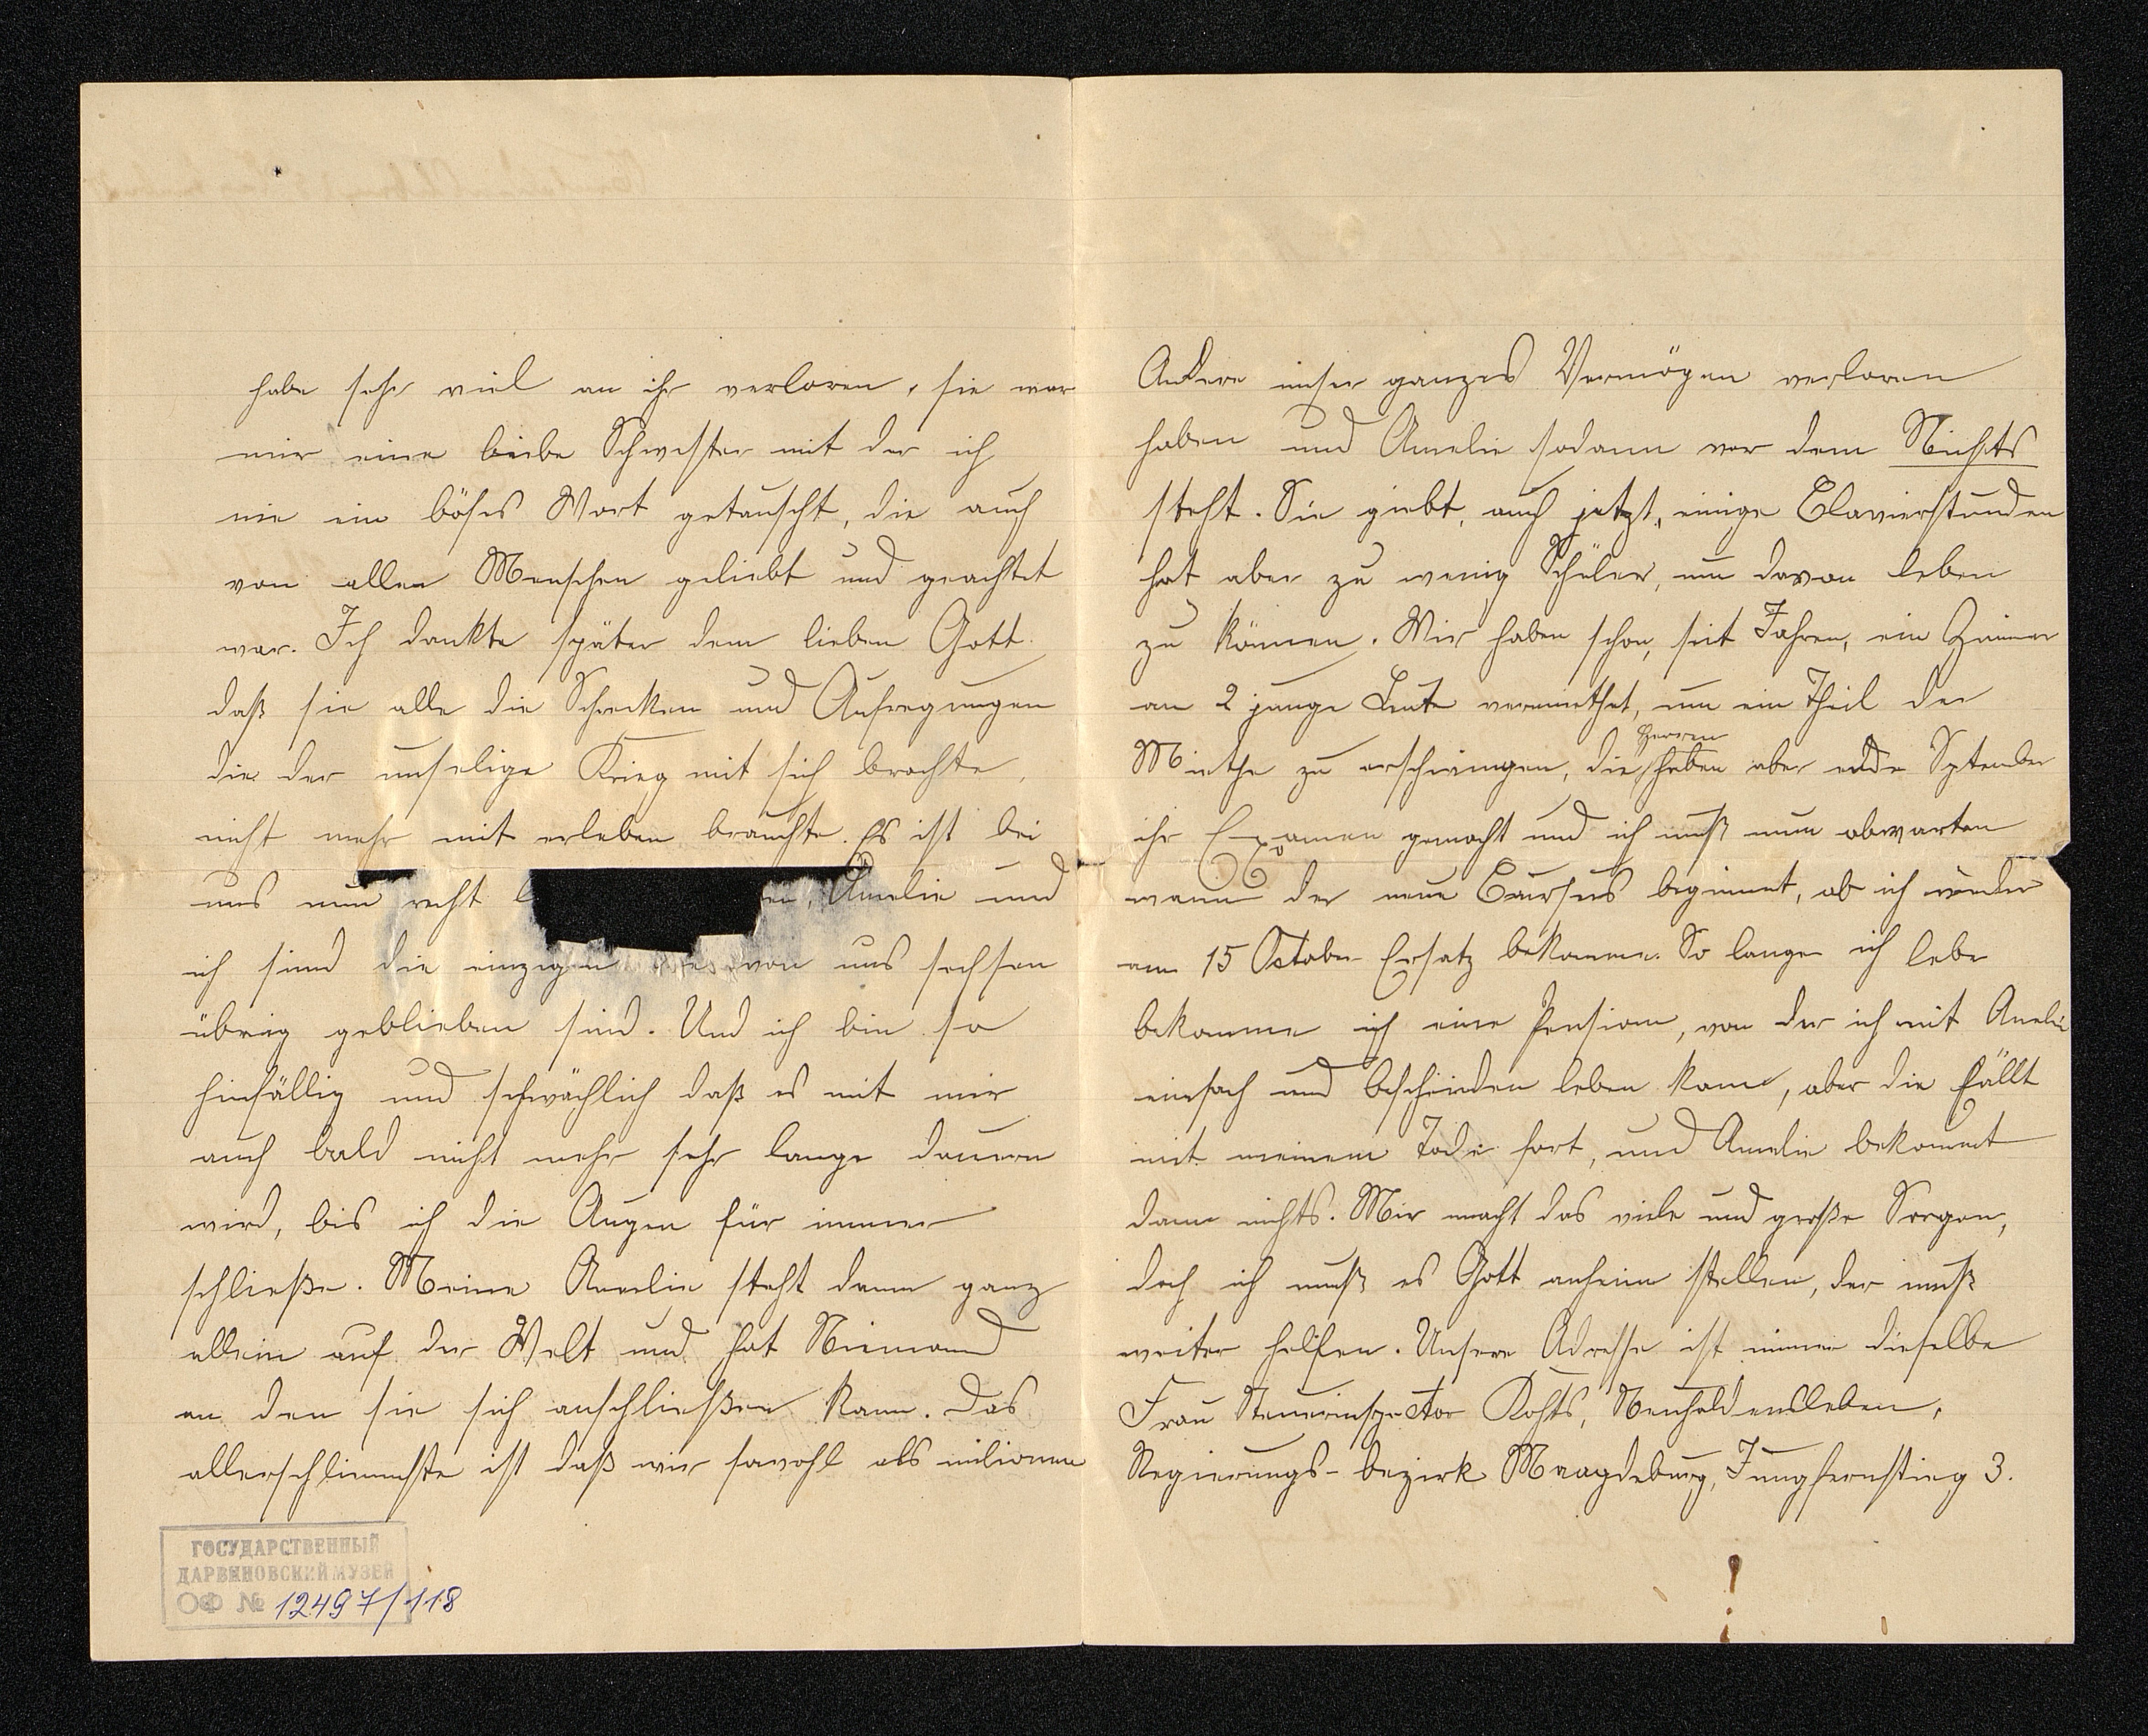 habe sehr viel an ihr verloren, sie war
mir eine liebe Schwester mit der ich
nie ein böses Wort getauscht, die auch
von allen Menschen geliebt und geachtet
war. Ich dankte später dem lieben Gott
daß sie alle die Schrecken und Aufregungen
die der unselige Krieg mit sich brachte,
nicht mehr mit erleben brauchte. Es ist bei
uns nun recht Amelie und
ich sind die einzigen von uns sechsen
übrig geblieben sind. Und ich bin so
hinfällig und schwächlich daß es mit mir
auch bald nicht mehr sehr lange dauern
wird, bis ich die Augen für immer
schließe. Meine Amelie steht dann ganz
allein auf der Welt und hat Niemand
an den sie sich anschließen kann. Das
allerschlimmste ist daß wir sowohl als milionen
ГОСУДАРСТВЕННЫЙ
ДАРВИНОВСКИЙ МУЗЕЙ
ОФ № 12497/118
Andere unser ganzes Vermögen verloren
haben und Amelie sodann vor dem Nichts
steht. Sie giebt, auch jetzt, einige Clavierstunden
hat aber zu wenig Schüler, um davon leben
zu können. Wir haben schon, seit Jahren, ein Zimmer
an 2 junge Leute vermiethet, um ein Theil der
Miethe zu erschwingen, die Herren haben aber ende September
ihr Examen gemacht und ich muß nun abwarten
wann der neue Cursus beginnt, ob ich wieder
am 15 October Ersatz bekomme. So lange ich lebe
bekomme ich eine Pension, von der ich mit Amelie
einfach und bescheiden leben kann, aber die fällt
mit meinem Tode fort, und Amelie bekommt
dann nichts. Mir macht das viele und große Sorgen,
doch ich muß es Gott anheim stellen, der muß
weiter helfen. Unsere Adresse ist immer dieselbe
Frau Steuerinspector Kohts, Neuhaldensleben,
Regierungs-bezirk Maagdeburg, Jungfernstieg 3.